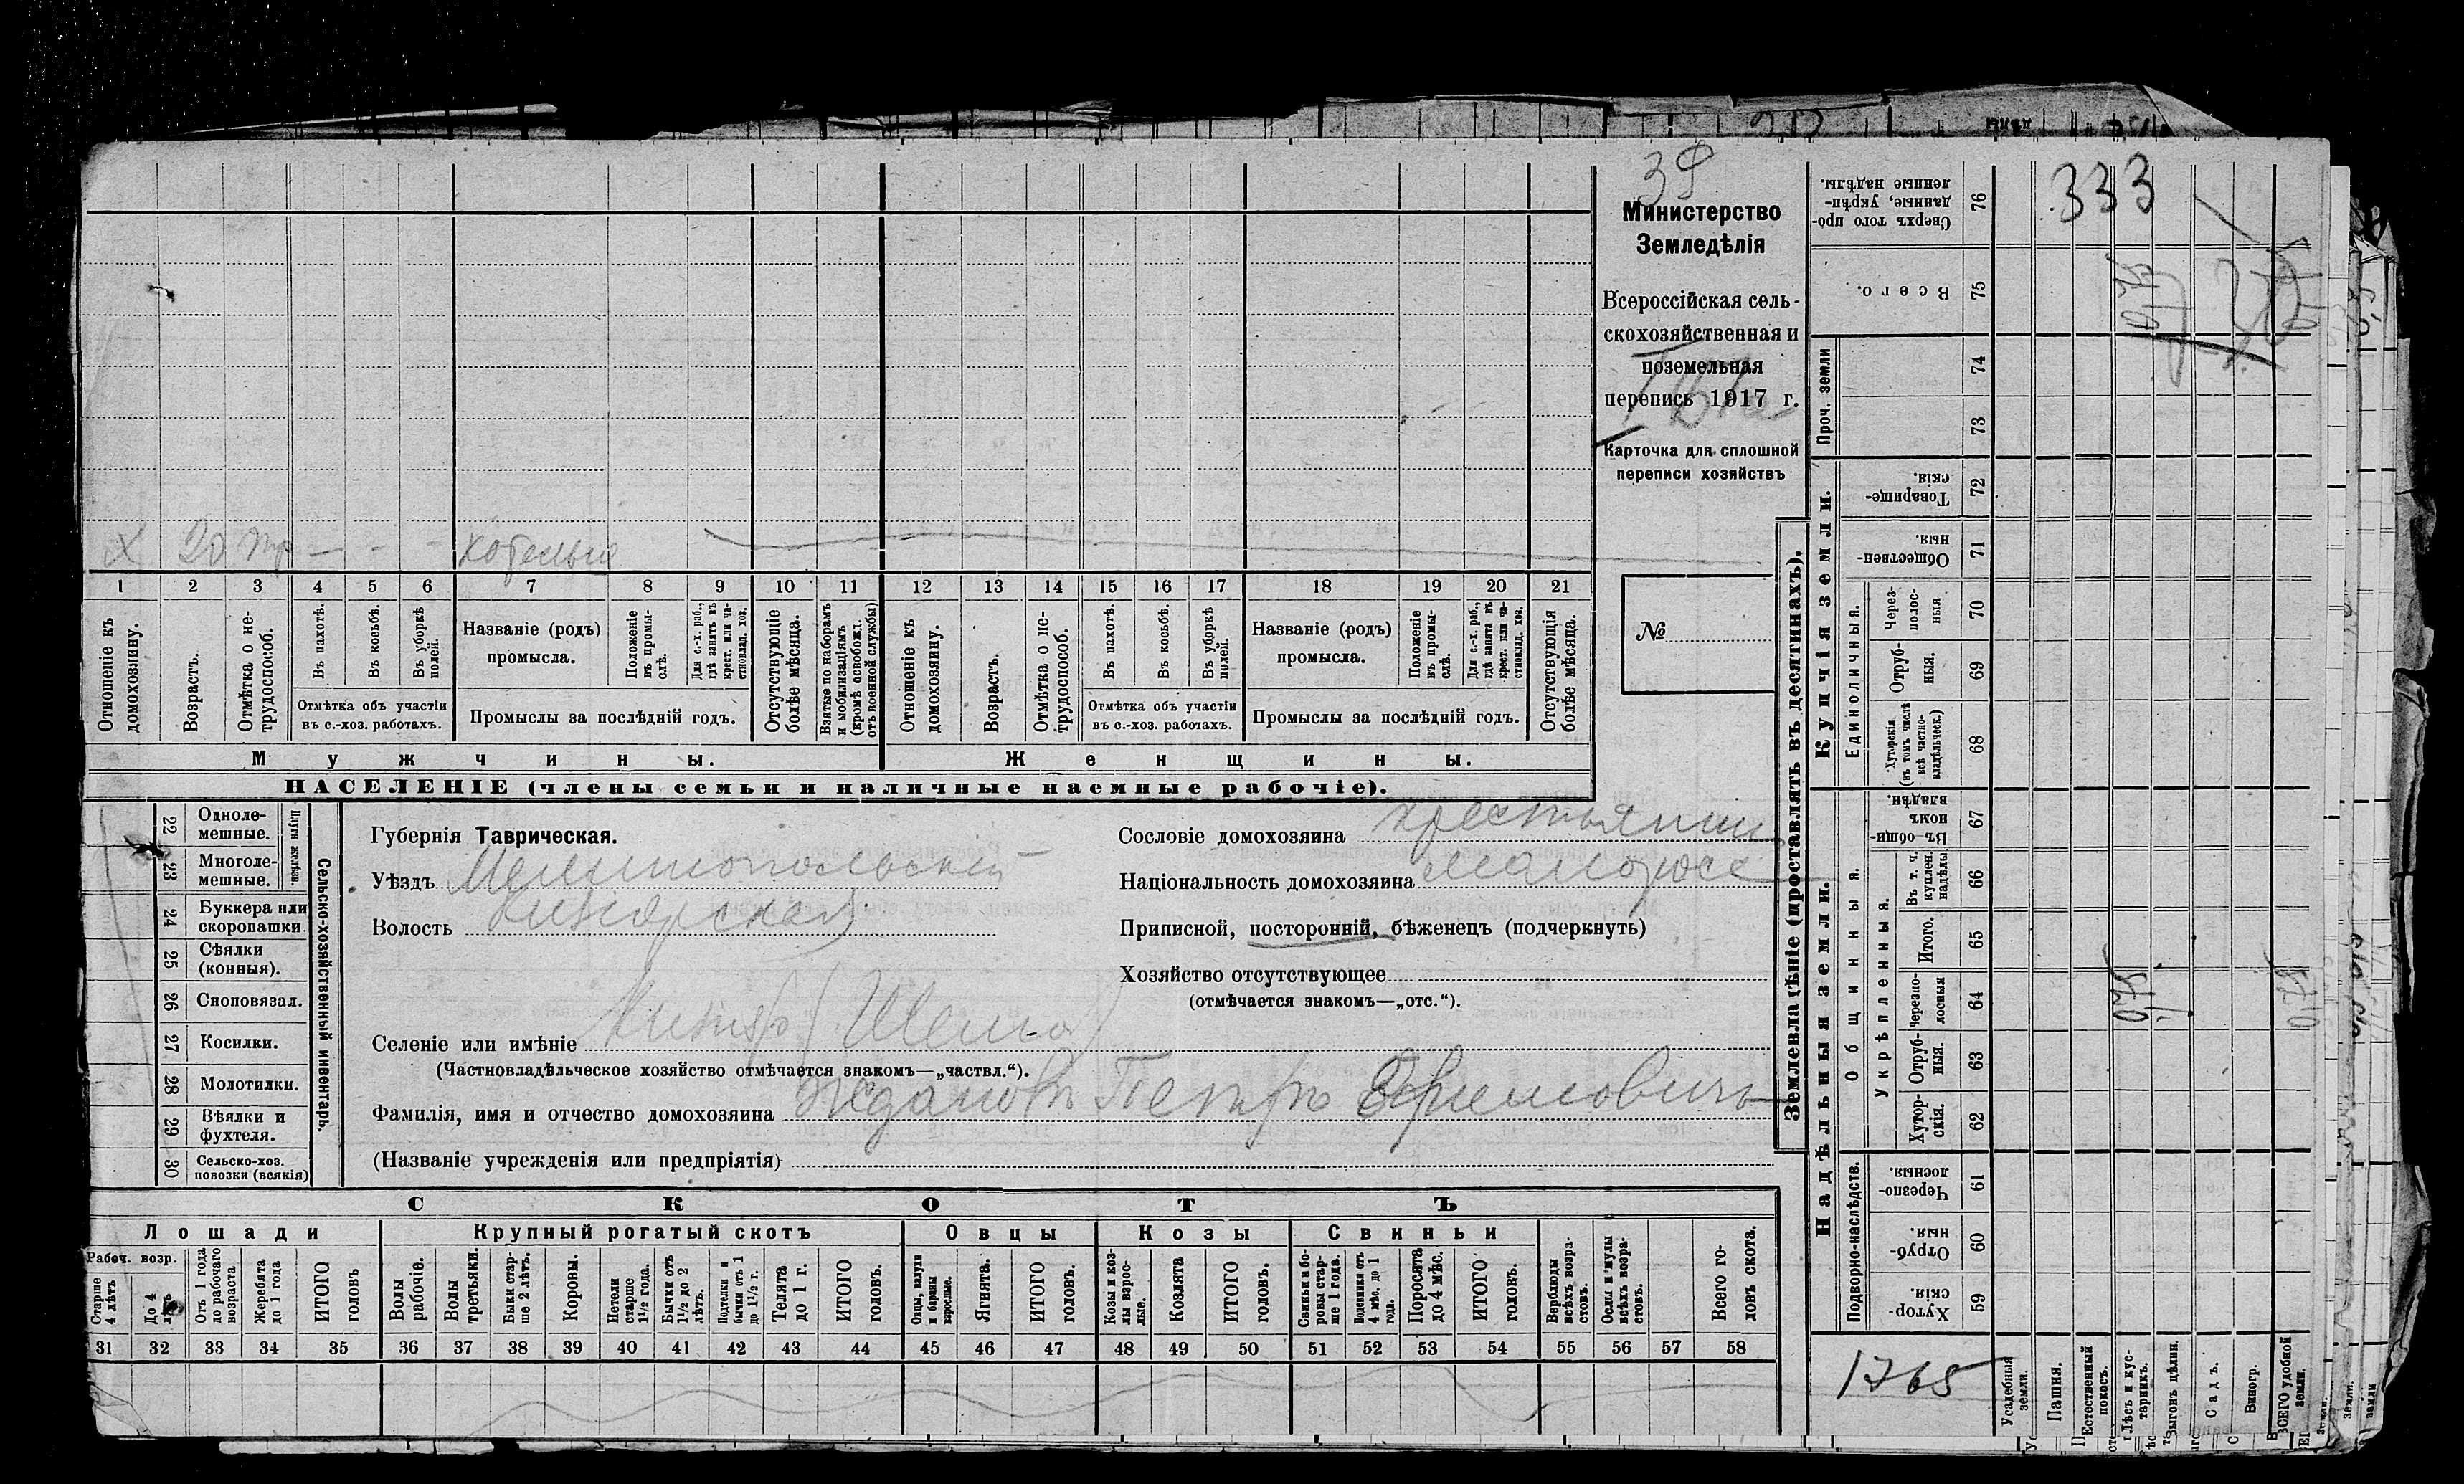 39
Министерство
Земледѣлія
Всероссійская сель-
скохозяйственная и
поземельная
перепись 1917 г.
Карточка для сплошной
переписи хозяйствъ
№
х 20 — - -
1 2 3 4 5 6 7 8 9 10 11 12 13 14 15 16 17 18 19 20 21
Отношеніе къ домохозяину.
Возрастъ.
Отмѣтка о нетрудоспособ.
Въ пахотѣ.
Въ косьбѣ.
Въ уборкѣ полей.
Отмѣтка объ участіи
въ с.-хоз. работахъ.
Названіе (родъ)
промысла.
Положеніе въ промыслѣ.
Для с.-х. раб., гдѣ занятъ въ крест. или частновлад. хоз.
Промыслы за послѣдній годъ.
Отсутствующіе болѣе мѣсяца.
Взятые по наборамъ и мобилизаціямъ (кромѣ освобожд. отъ военной службы)
Отношеніе къ домохозяину.
Возрастъ.
Отмѣтка о нетрудоспособ.
Въ пахотѣ.
Въ косьбѣ.
Въ уборкѣ полей.
Отмѣтка объ участіи
въ с.-хоз. работахъ.
Названіе (родъ)
промысла.
Положеніе въ промыслѣ.
Для с.-х. раб., гдѣ занята въ крест. или частновлад. хоз.
Промыслы за послѣдній годъ.
Отсутствующія болѣе мѣсяца.
Мужчины.
Женщины.
НАСЕЛЕНІЕ (члены семьи и наличные наемные рабочіе).
Сельско-хозяйственный инвентарь.
Плуги желѣзн.
22 Одноле-
мешные.
23 Многоле-
мешные.
24 Буккера или
скоропашки.
25 Сѣялки
(конныя).
26 Сноповязал.
27 Косилки.
28 Молотилки.
29 Вѣялки и
фухтеля.
30 Сельско-хоз.
повозки (всякія)
Губернія Таврическая.
Уѣздъ Мелитопольскій
Волость
Сословіе домохозяина крестьянин
Національность домохозяина малоросс
Приписной, посторонній, бѣженецъ (подчеркнуть)
Хозяйство отсутствующее
(отмѣчается знакомъ—„отс.“).
Селеніе или имѣніе
(Частновладѣльческое хозяйство отмѣчается знакомъ—„частвл.“).
Фамилія, имя и отчество домохозяина Ждановъ Петръ Ефимовичъ
(Названіе учрежденія или предпріятія)
СКОТЪ
Лошади
Крупный рогатый скотъ
Овцы
Козы
Свиньи
Рабоч. возр.
Старше 4 лѣтъ
До 4 лѣтъ
Отъ 1 года до рабочаго возраста
Жеребята до 1 года
ИТОГО головъ
Волы рабочіе.
Волы третьяки.
Быки старше 2 лѣтъ.
Коровы.
Нетели старше 1½ года.
Бычки отъ 1½ до 2 лѣтъ.
Подтелки и бычки отъ 1 до 1½ г.
Телята до 1 г.
ИТОГО головъ.
Овцы, валухи и бараны взрослые.
Ягнята.
ИТОГО головъ.
Козы и козлы взрослые.
Козлята
ИТОГО головъ.
Свиньи и боровы старше 1 года.
Подсвинки отъ 4 мѣс. до 1 года.
Поросята до 4 мѣс.
ИТОГО головъ.
Верблюды всѣхъ возрастовъ.
Ослы и мулы всѣхъ возрастовъ.
Всего головъ скота.
31 32 33 34 35 36 37 38 39 40 41 42 43 44 45 46 47 48 49 50 51 52 53 54 55 56 57 58
Землевладѣніе (проставлять въ десятинахъ).
Купчія земли.
Надѣльныя земли.
Сверхъ того проданные, укрѣпленные надѣлы. 76
Всего. 75
Проч. земли 74
73
Товарищескія. 72
Общественныя. 71
Единоличныя.
Черезполосныя 70
Отрубныя. 69
Хуторскія (въ томъ числѣ всѣ частновладѣльческ.) 68
Общинныя.
Въ общинномъ владѣн. 67
Укрѣпленныя.
Въ т. ч. куплен. надѣлы 66
Итого. 65
Черезполосныя 64
Отрубныя. 63
Хуторскія. 62
Подворно-наслѣдств.
Черезполосныя. 61
Отрубныя. 60
Хуторскія. 59
333
1765
Усадебныя земли.
Пашня.
Естественный покосъ.
Лѣсъ и кустарникъ.
Выгонъ цѣлин.
Садъ.
Виногр.
ВСЕГО удобной земли.